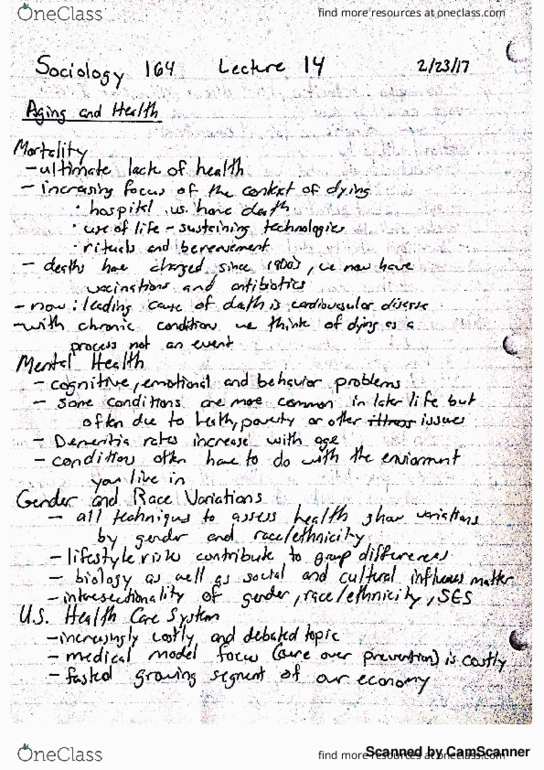 OneClass
find more resources at oneclass.com
Sociology 164 Lecture 14 2/23/17
Aging and Health
Mortality
- ultimate lack of health
- increasing focus of the context of dying
· hospital vs. home death
· use of life-sustaining technologies
· rituals and bereavement
- deaths have changed since 1900s, we now have
vaccinations and antibiotics
- now: leading cause of death is cardiovascular disease
- with chronic condition we think of dying as a
process not an event
Mental Health
- cognitive, emotional and behavior problems
- some conditions are more common in later life but
often due to health, poverty or other illness issues
- Dementia rates increase with age
- condition often have to do with the enviorment
you live in
Gender and Race Variations
- all techniques to assess health show variations
by gender and race/ethnicity
- lifestyle risks contribute to group differences
- biology as well as social and cultural influences matter
- intersectionality of gender, race/ethnicity, SES
U.S. Health Care System
- increasingly costly and debated topic
- medical model focus (cure over prevention) is costly
- fasted growing segment of our economy
OneClass
find more resources at oneclass.com
Scanned by CamScanner